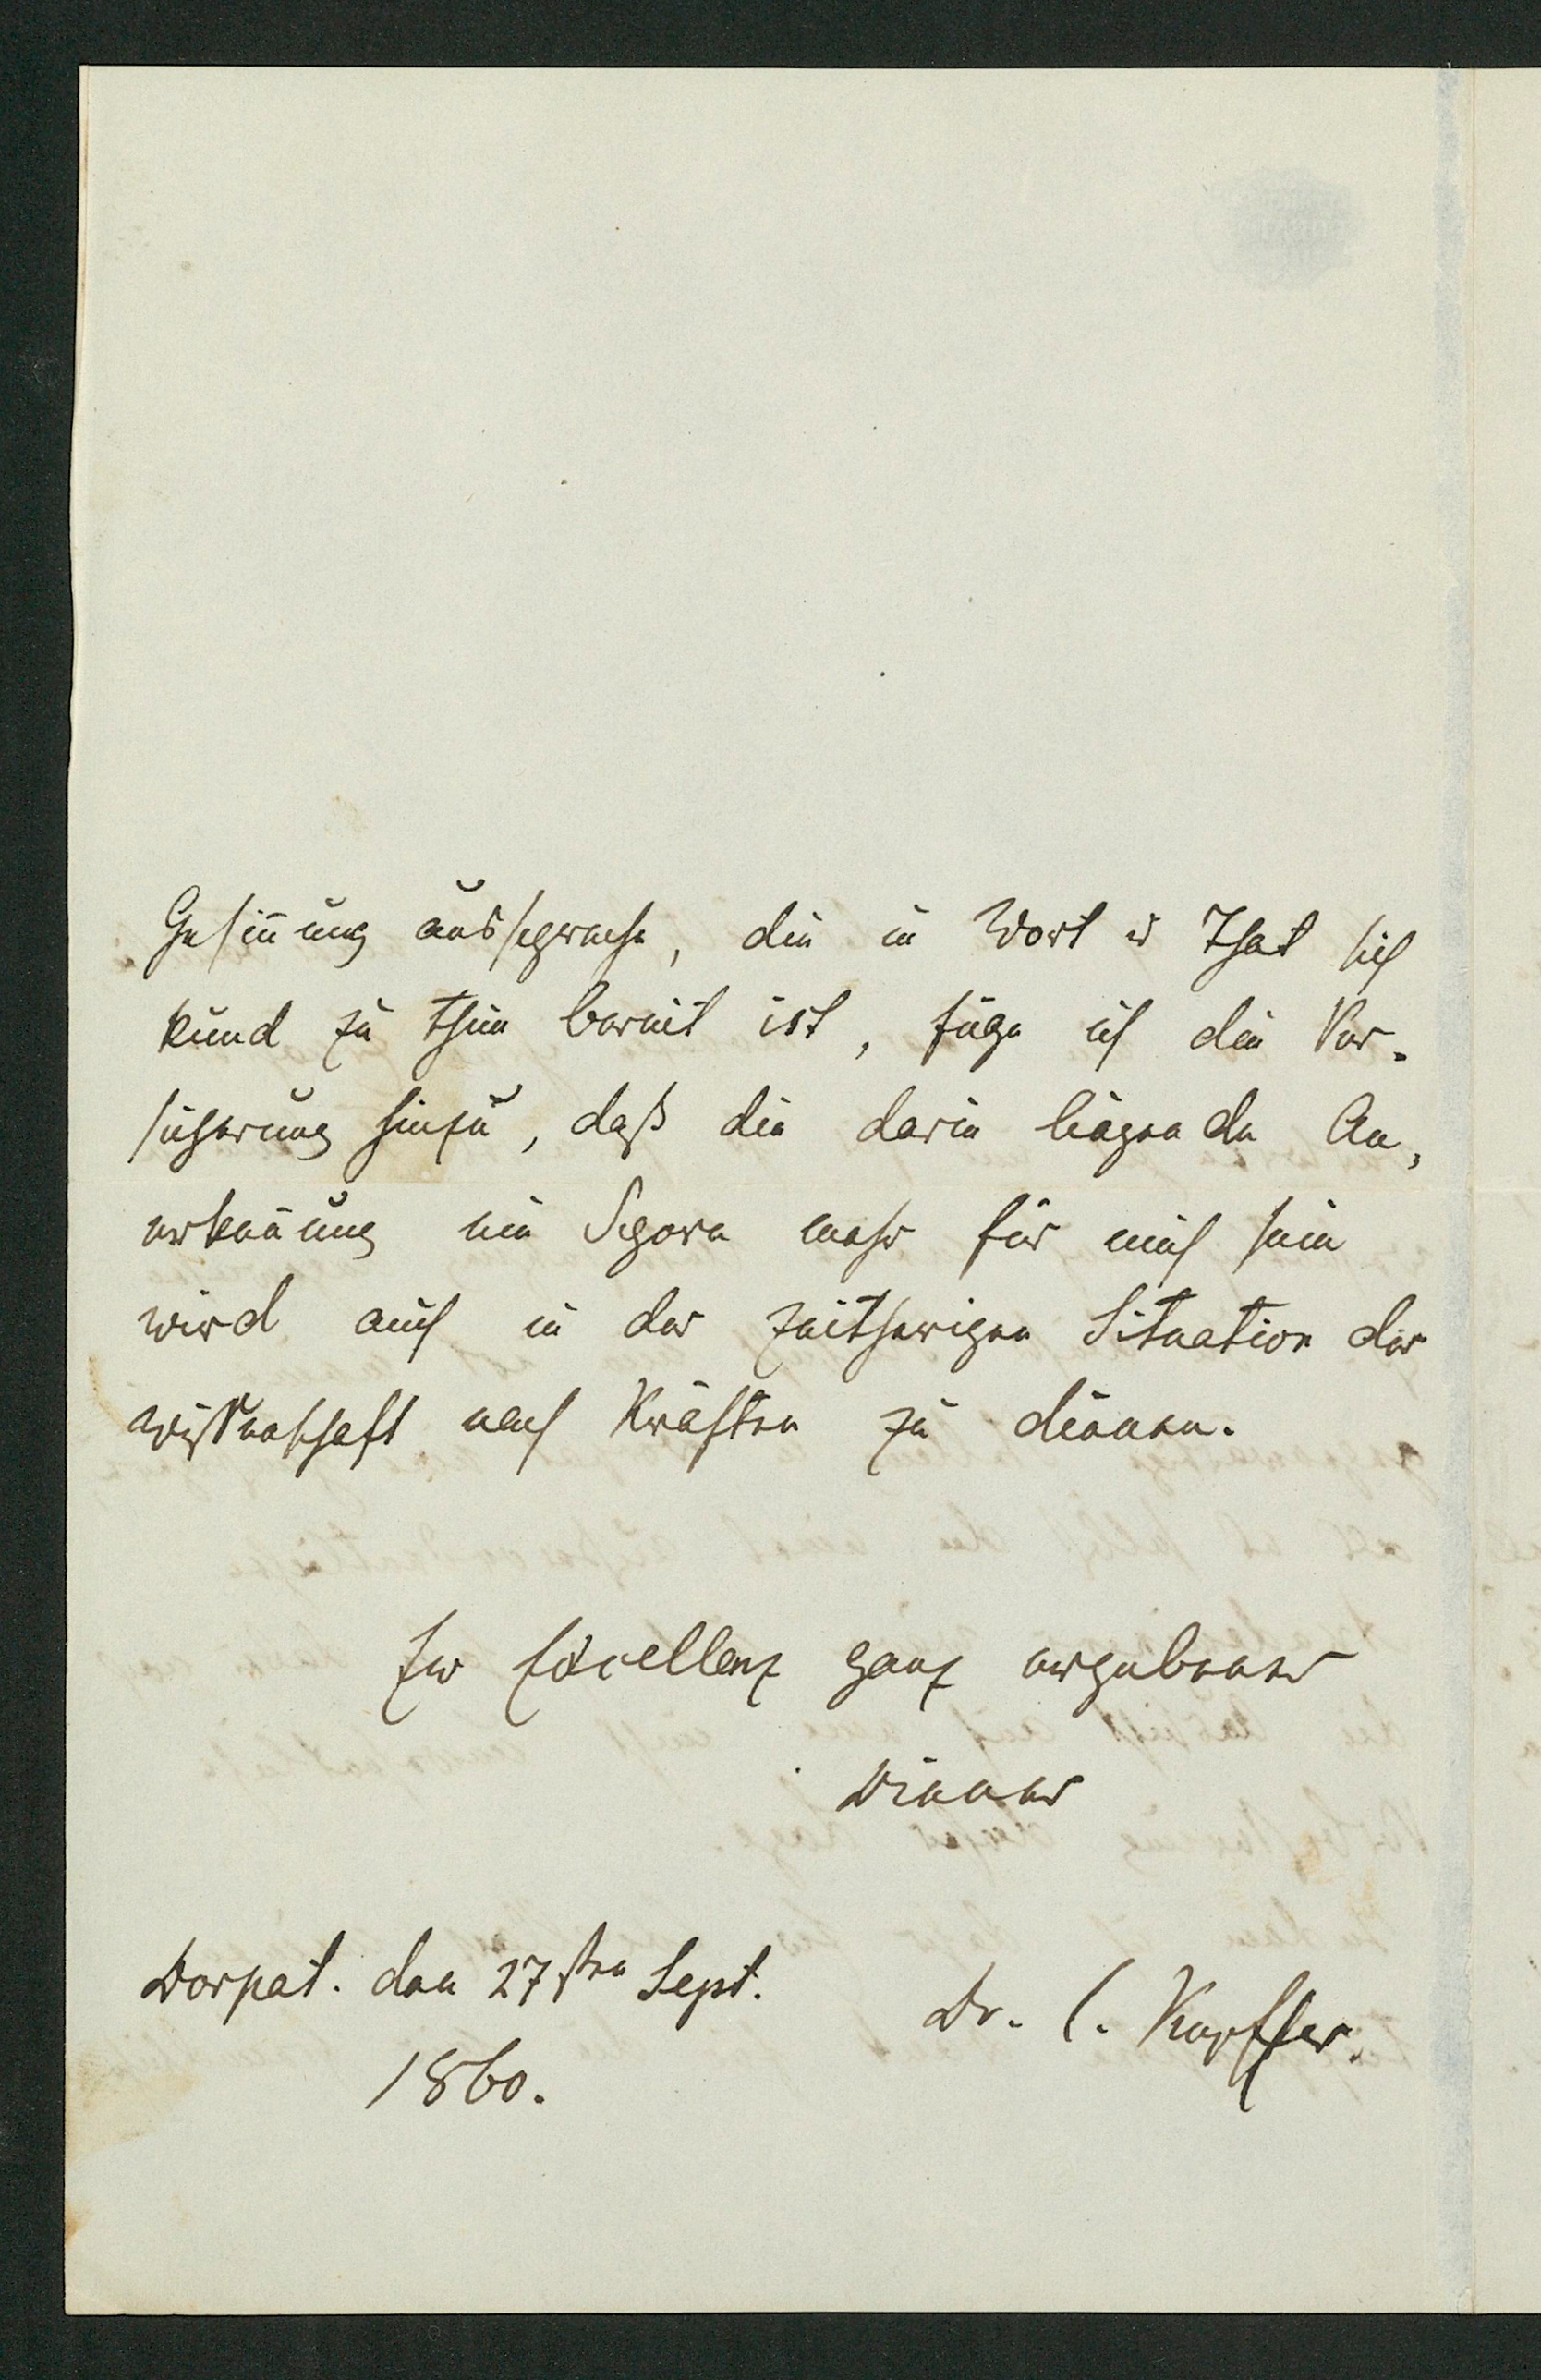 Gesin̄ung ausspreche, die in Wort u That sich
kund zu thun bereit ist, füge ich die Ver-
sicherung hinzu, daß die darin liegende An-
erken̄ung ein Sporn mehr für mich sein
wird auch in der zeitherigen Situation der
Wissenschaft nach Kräften zu dienen.
Ew Excellenz ganz ergebener
Diener
Dorpat. den 27sten Sept.
1860.
Dr. C. Kupffer.